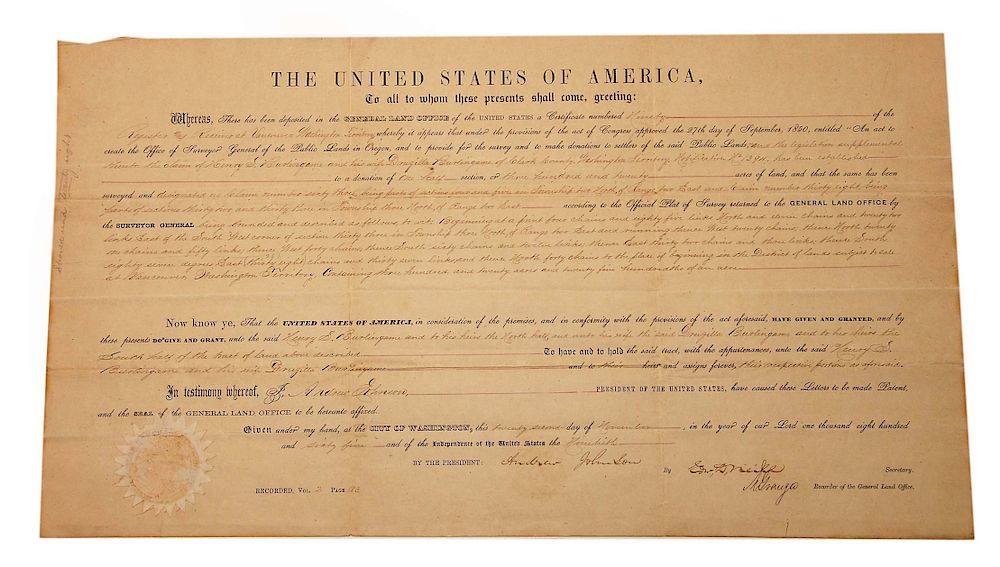 THE UNITED STATES OF AMERICA,
To all to whom these presents shall come, greeting:
Whereas, There has been deposited in the GENERAL LAND OFFICE of the UNITED STATES a Certificate numbered Ninety of the
Register & Receiver at Vancouver Washington Territory whereby it appears that under the provisions of the act of Congress approved the 27th day of September, 1850, entitled "An act to
create the Office of Surveyor General of the Public Lands in Oregon, and to provide for the survey and to make donations to settlers of the said Public Lands, and the legislation supplemental
thereto, the claim of Henry S. Burlingame and his wife Druzilla Burlingame of Clark County, Washington Territory, Notification No. has been established
to a donation of One half section, or three hundred and twenty acres of land, and that the same has been
surveyed and designated as Claim number sixty three, being parts of sections four and five in Township two North of Range two East and Claim number thirty eight being
parts of sections thirty two and thirty three in Township three North, of Range two East according to the Official Plat of Survey returned to the GENERAL LAND OFFICE by
the SURVEYOR GENERAL being bounded and described as follows to wit: Beginning at a point four chains and eighty five links North and seven chains and twenty two
links East of the South West corner of section thirty three in Township three North, of Range two East and running thence West twenty chains, thence North twenty
chains and fifty links, thence West forty chains, thence South sixty chains and twelve links, thence East thirty two chains and three links, thence South
eighty seven degrees East (thirty eight) chains and thirty seven links, and thence North forty chains to the place of beginning in the District of lands subject to sale
at Vancouver Washington Territory, Containing three hundred and twenty acres and twenty five hundredths of an acre
Now know ye, That the UNITED STATES OF AMERICA, in consideration of the premises, and in conformity with the provisions of the act aforesaid, HAVE GIVEN AND GRANTED, and by
these presents DO GIVE AND GRANT, unto the said Henry S. Burlingame and to his heirs the North half, and unto his wife the said Druzilla Burlingame and to her heirs the
South half of the tract of land above described To have and to hold the said tract, with the appurtenances, unto the said Henry S.
Burlingame and his wife Druzilla Burlingame and to their heirs and assigns forever, their respective portions as aforesaid.
In testimony whereof, I, Andrew Johnson, PRESIDENT OF THE UNITED STATES, have caused these Letters to be made Patent,
and the SEAL of the GENERAL LAND OFFICE to be hereunto affixed.
Given under my hand, at the CITY OF WASHINGTON, this twenty second day of November, in the year of our Lord one thousand eight hundred
and sixty five and of the Independence of the United States the Ninetieth
BY THE PRESIDENT: Andrew Johnson
By Edw. D. Neill Secretary.
Recorder of the General Land Office.
RECORDED, VOL. 2 PAGE